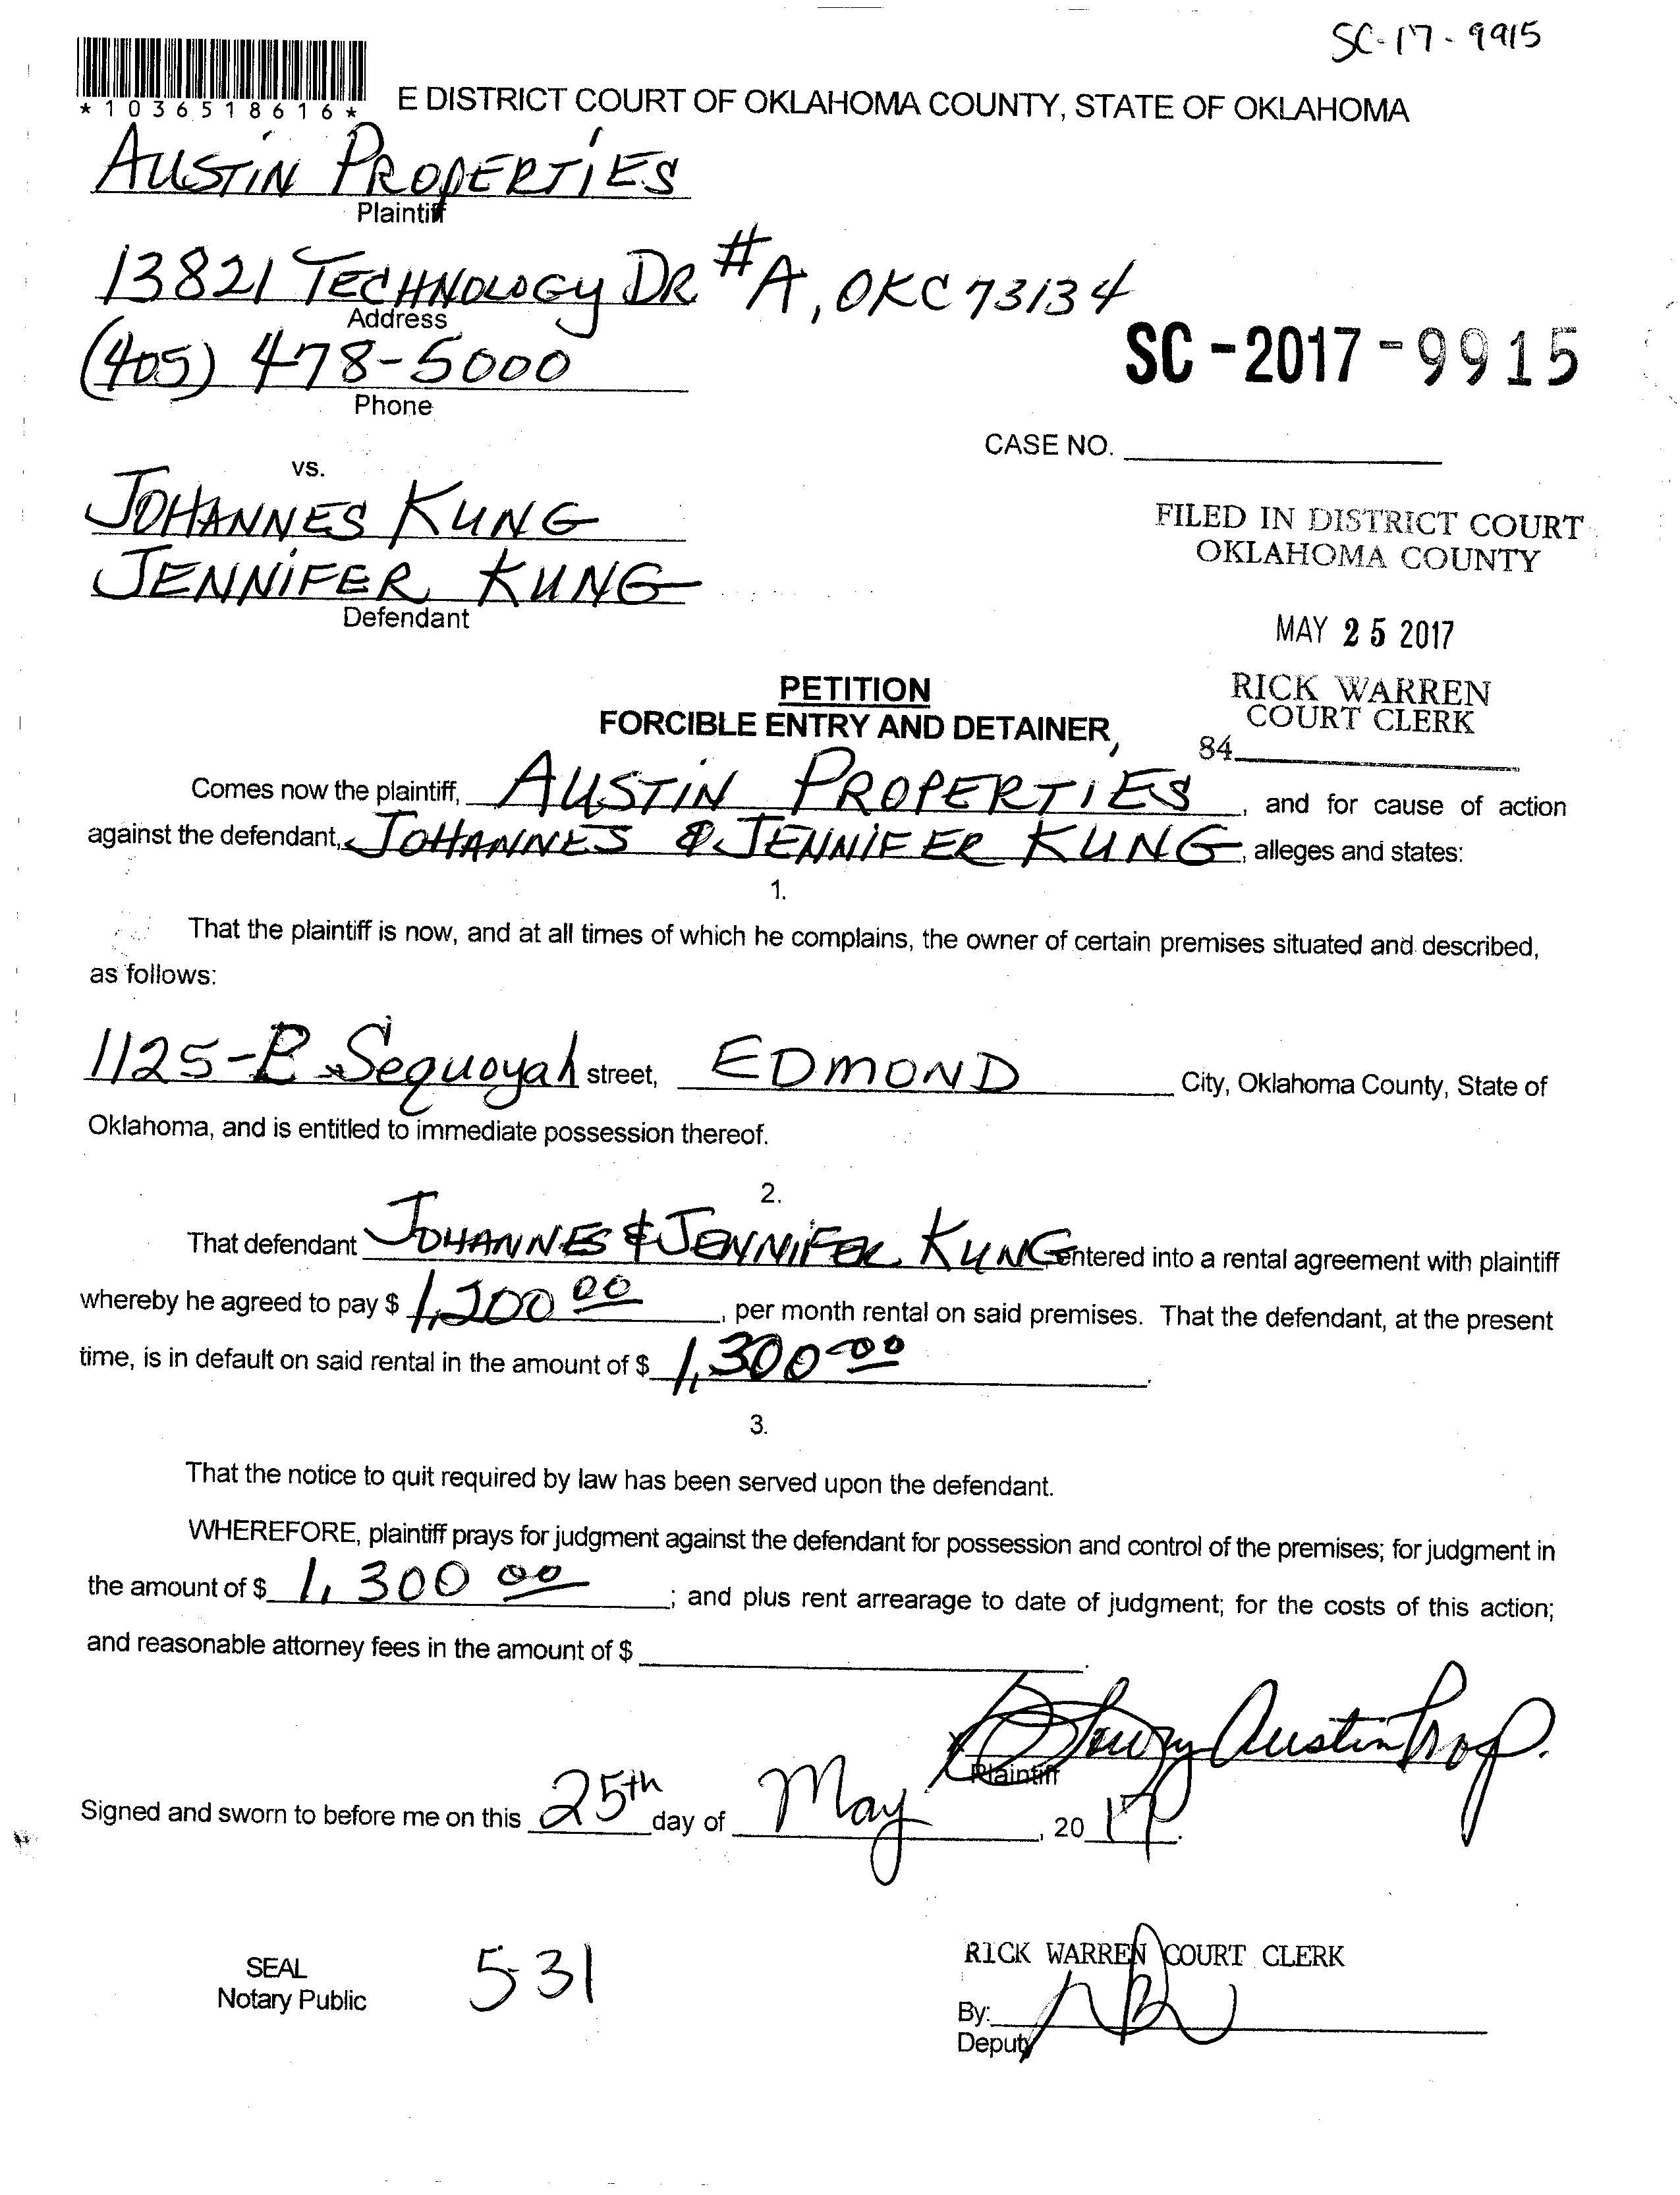 SC-17-9915
*1036518616*
E DISTRICT COURT OF OKLAHOMA COUNTY, STATE OF OKLAHOMA
AUSTIN PROPERTIES
Plaintiff
13821 TECHNOLOGY DR #A, OKC 73134
Address
(405) 478-5000
Phone
SC-2017-9915
CASE NO.
vs.
JOHANNES KUNG
JENNIFER KUNG
Defendant
FILED IN DISTRICT COURT
OKLAHOMA COUNTY
MAY 25 2017
RICK WARREN
COURT CLERK
84
PETITION
FORCIBLE ENTRY AND DETAINER
Comes now the plaintiff, AUSTIN PROPERTIES, and for cause of action
against the defendant, JOHANNES & JENNIFER KUNG, alleges and states:
1.
That the plaintiff is now, and at all times of which he complains, the owner of certain premises situated and described,
as follows:
1125- Sequoyah street, EDMOND City, Oklahoma County, State of
Oklahoma, and is entitled to immediate possession thereof.
2.
That defendant JOHANNES & JENNIFER KUNG entered into a rental agreement with plaintiff
whereby he agreed to pay $ 1,200 00, per month rental on said premises. That the defendant, at the present
time, is in default on said rental in the amount of $ 1,300 00.
3.
That the notice to quit required by law has been served upon the defendant.
WHEREFORE, plaintiff prays for judgment against the defendant for possession and control of the premises; for judgment in
the amount of $ 1,300 00; and plus rent arrearage to date of judgment; for the costs of this action;
and reasonable attorney fees in the amount of $.
Austin Prop.
Plaintiff
Signed and sworn to before me on this 25th day of May, 2017.
SEAL
Notary Public
531
RICK WARREN COURT CLERK
By:
Deputy